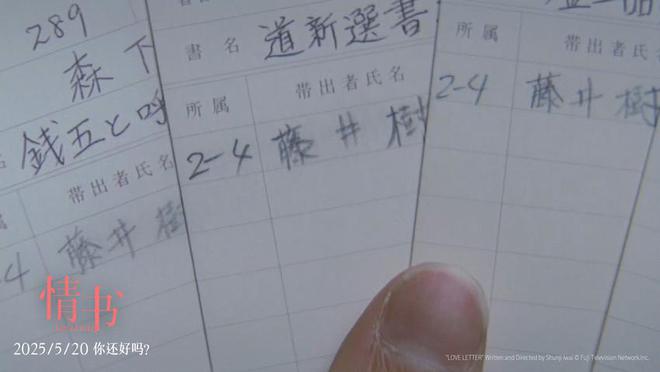 289
森下
銭五と呼
帯出者氏名
4 藤井樹
書名 道新選書
所属 帯出者氏名
2-4 藤井樹
所属 帯出者氏名
2-4 藤井樹
情书
2025/5/20 你还好吗?
"LOVE LETTER" Written and Directed by Shunji Iwai © Fuji Television Network.Inc.